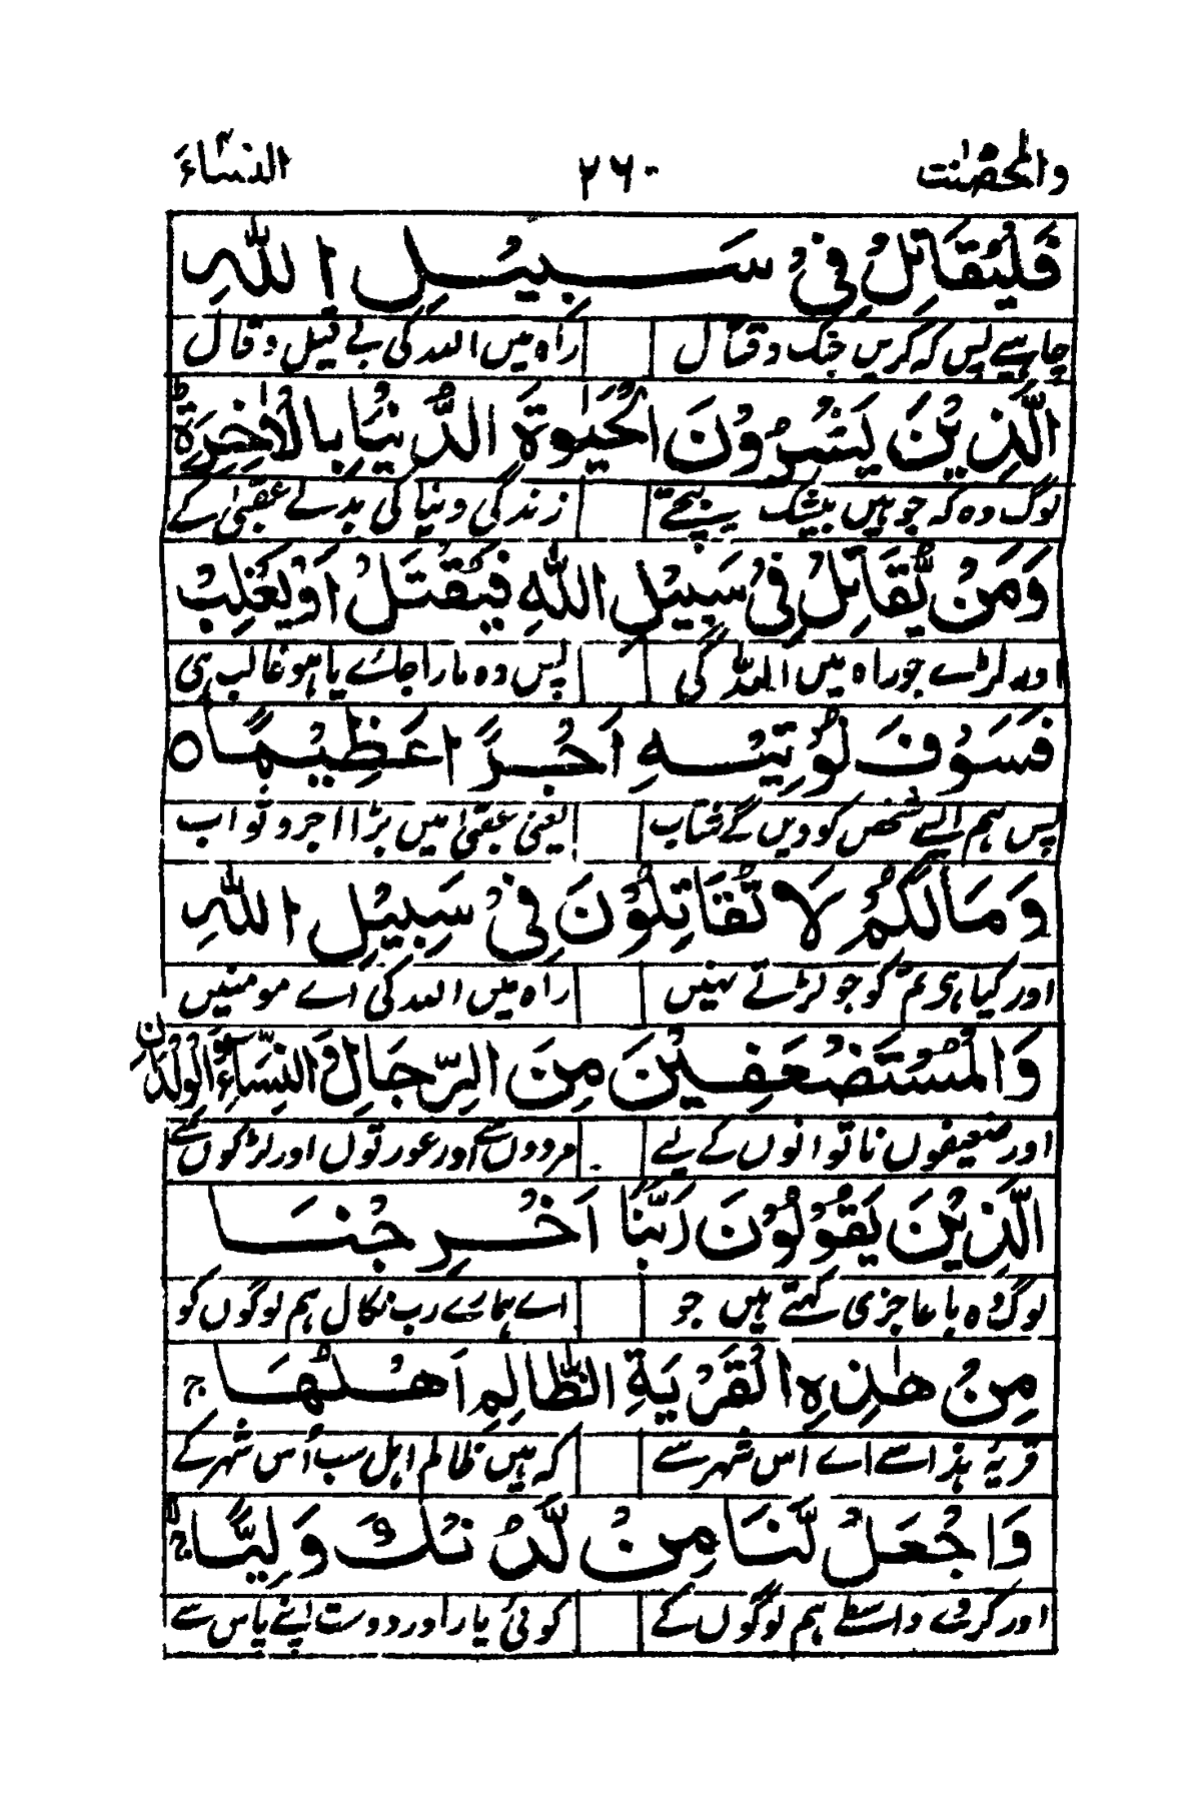 والمحصنٰت ۲۶۰ النساء۴
فَلْيُقَاتِلْ فِيْ سَبِيْلِ اللّٰهِ
چاہیے پس کہ کریں جنگ و قتال راہ میں اللہ کی بے قیل و قال
الَّذِيْنَ يَشْرُوْنَ الْحَيٰوةَ الدُّنْيَا بِالْاٰخِرَةِ ؕ
لوگ وہ کہ جو ہیں بیشک بیچتے زندگی دنیا کی بدلے عقبیٰ کے
وَمَنْ يُّقَاتِلْ فِيْ سَبِيْلِ اللّٰهِ فَيُقْتَلْ اَوْ يَغْلِبْ
اور لڑے جو راہ میں اللہ کی پس وہ مارا جائے یا ہو غالب ہی
فَسَوْفَ نُؤْتِيْهِ اَجْرًا عَظِيْمًا ○
پس ہم ایسے شخص کو دیں گے شتاب یعنی عقبیٰ میں بڑا اجر و ثواب
وَمَا لَكُمْ لَا تُقَاتِلُوْنَ فِيْ سَبِيْلِ اللّٰهِ
اور کیا ہی تم کو جو لڑتے نہیں راہ میں اللہ کی اے مومنیں
وَالْمُسْتَضْعَفِيْنَ مِنَ الرِّجَالِ وَالنِّسَآءِ وَالْوِلْدَانِ
اور ضعیفوں ناتوانوں کے لیے مردوں سے اور عورتوں اور لڑکوں سے
الَّذِيْنَ يَقُوْلُوْنَ رَبَّنَا اَخْرِجْنَا
لوگ وہ با عاجزی کہتے ہیں جو اے ہمارے رب نکال ہم لوگوں کو
مِنْ هٰذِهِ الْقَرْيَةِ الظَّالِمِ اَهْلُهَا ۚ
قریۂ ہذا سے اے اس شہر سے کہ ہیں ظالم اہل سب اُس شہر کے
وَاجْعَلْ لَّنَا مِنْ لَّدُنْكَ وَلِيًّا ۚ
اور کر دے واسطے ہم لوگوں کے کوئی یار اور دوست اپنے پاس سے